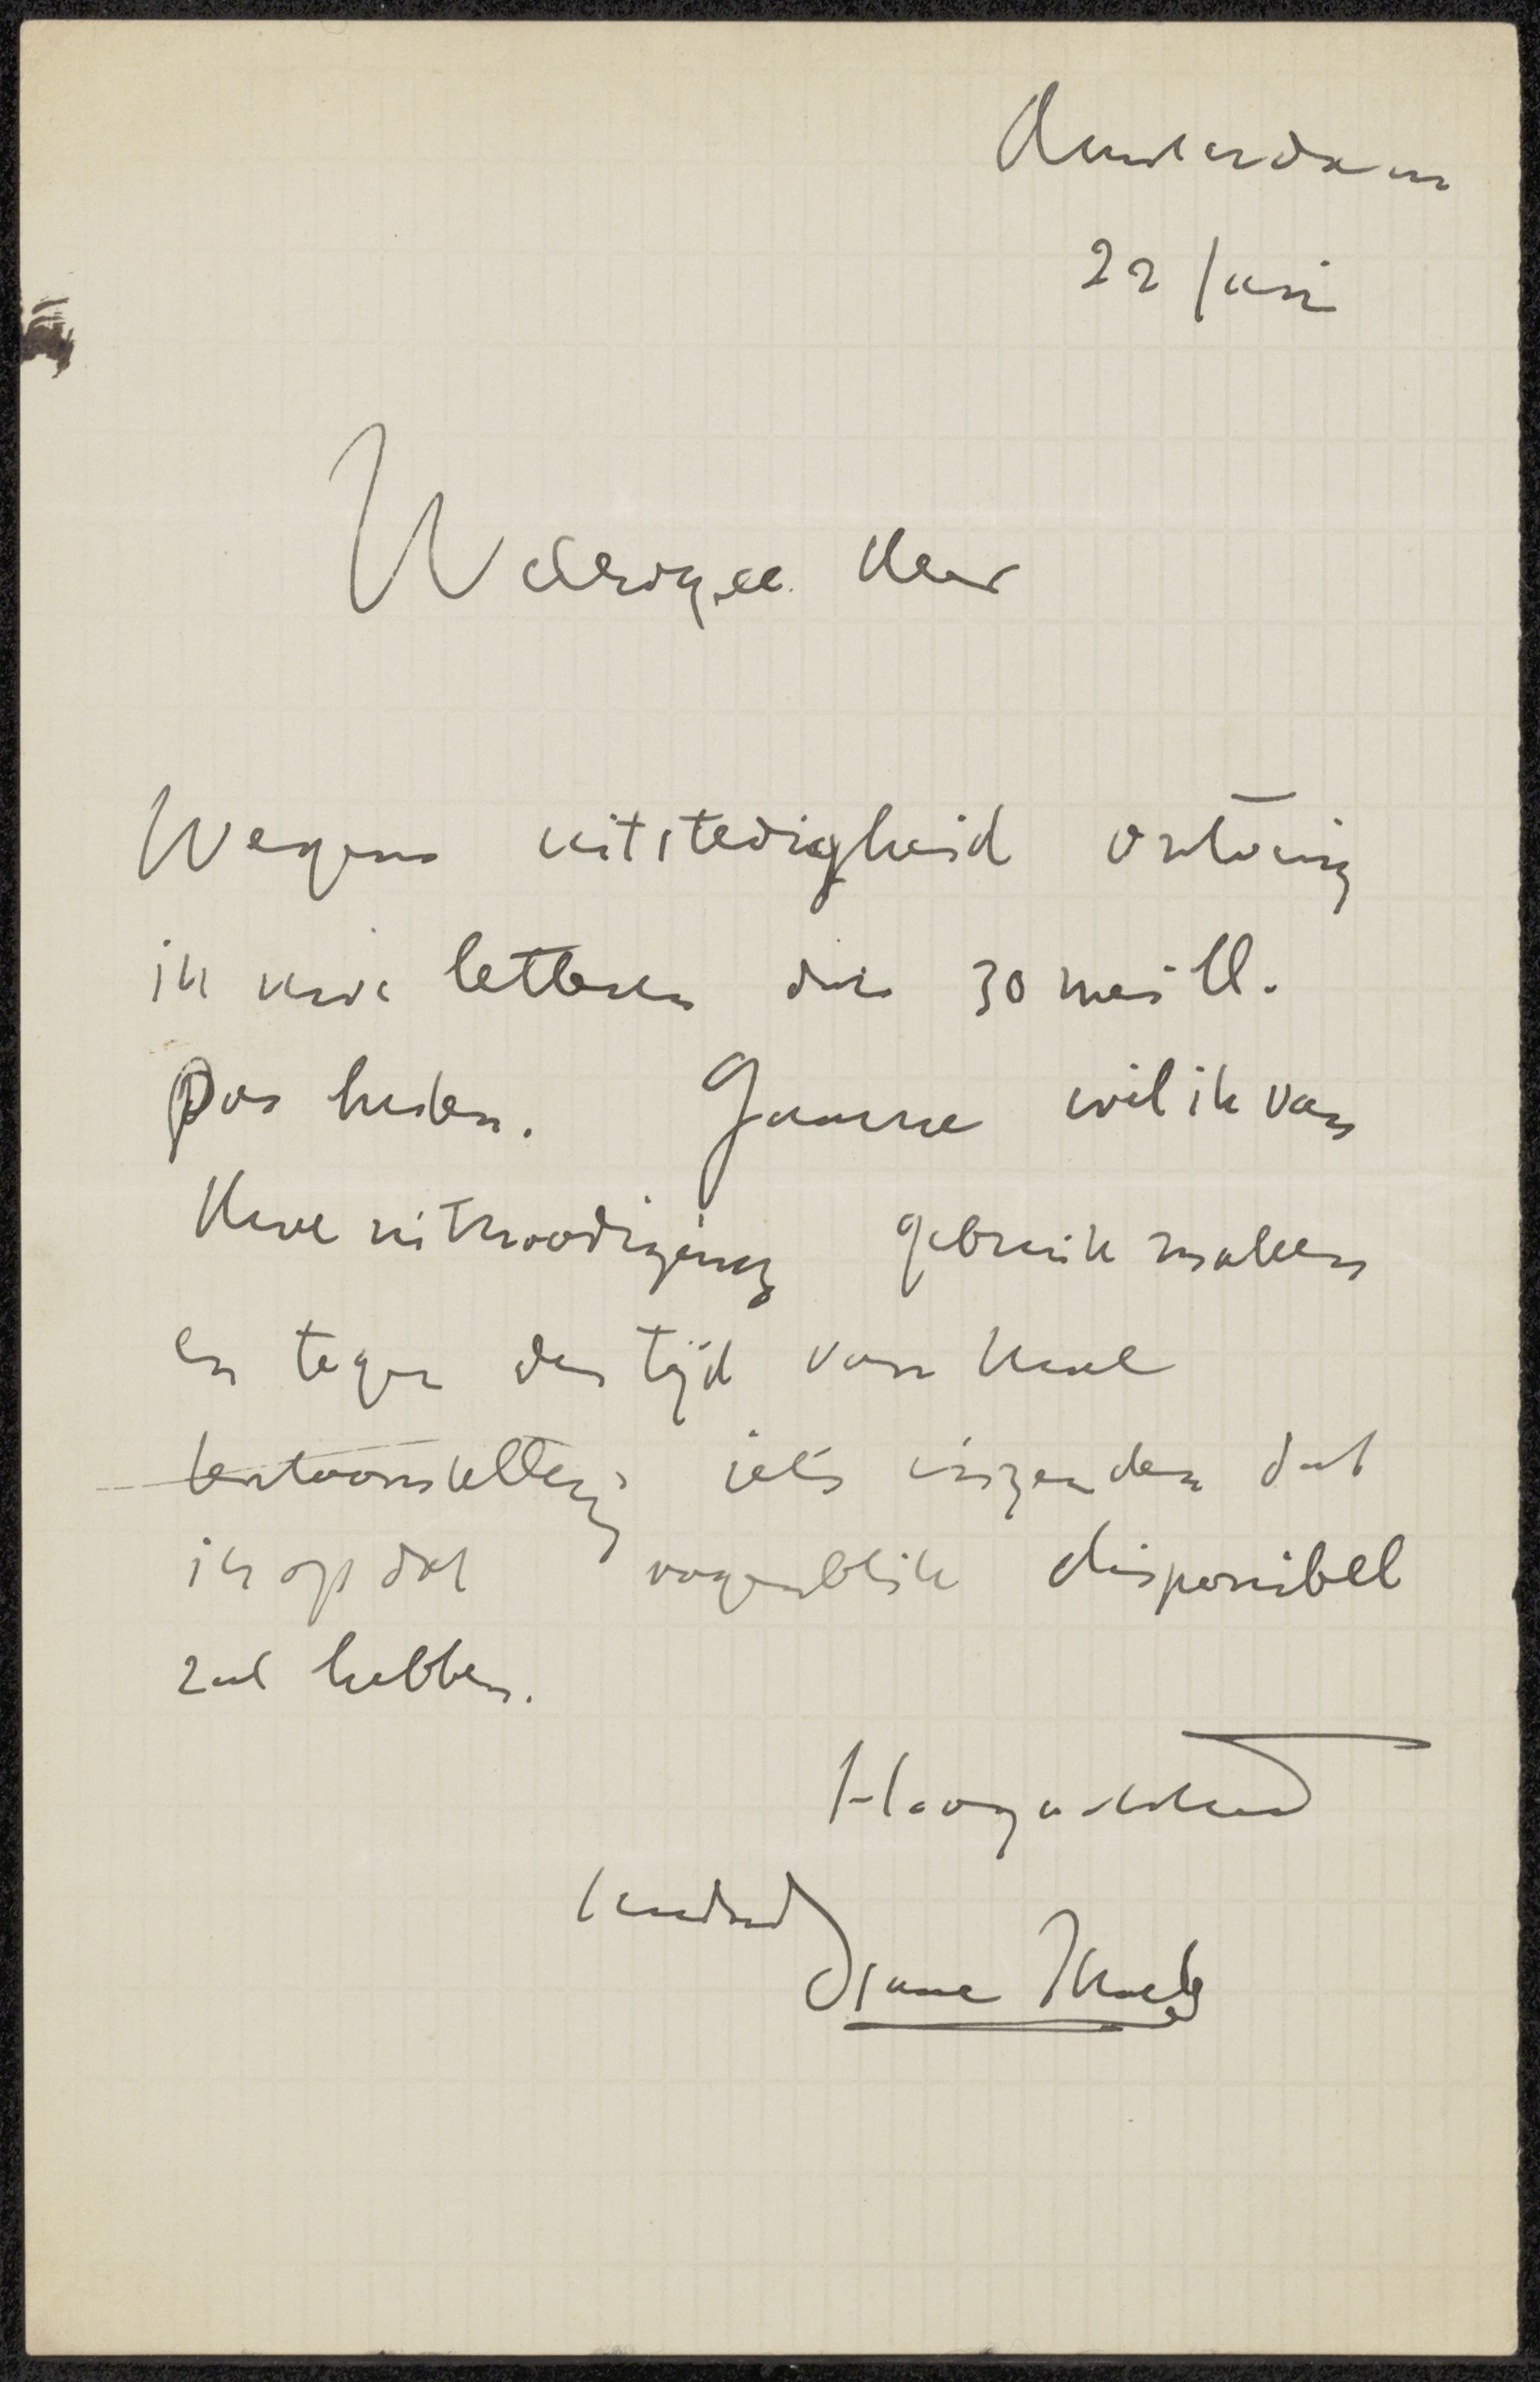 Amsterdam
22 Juni
WelEdgeb. Heer
Wegens uitstedigheid ontving
ik uwe letteren dd. 30 mei ll.
pas heden. Gaarne wil ik van
Uwe uitnoodiging gebruik maken
en tegen den tijd van Uwe
tentoonstelling iets inzenden dat
ik op dat oogenblik disponibel
zal hebben.
Hoogachtend